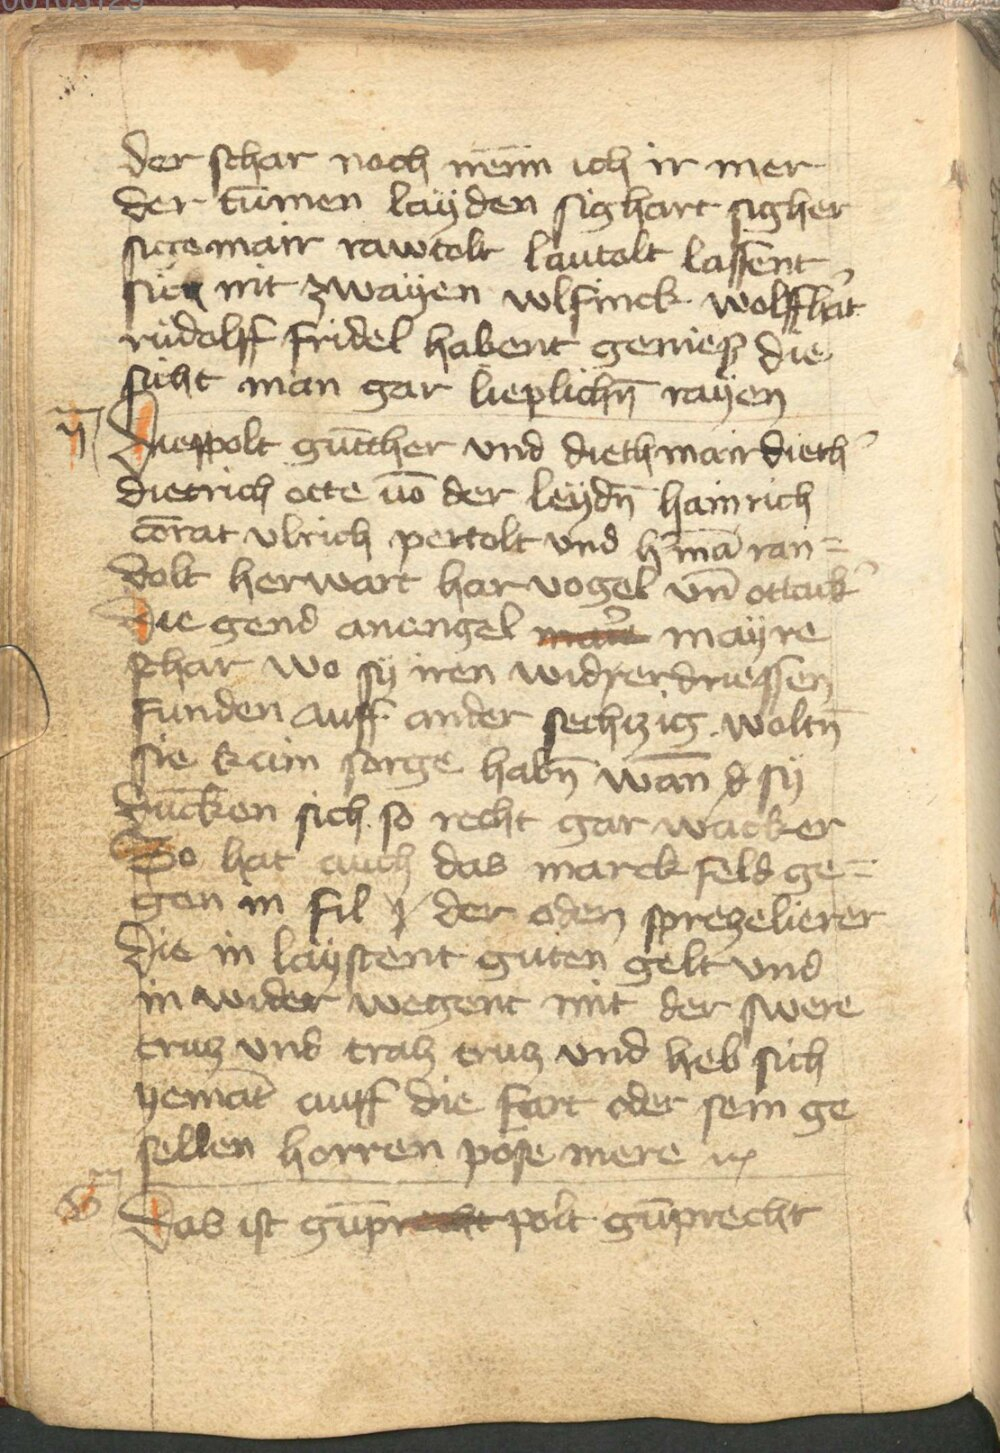 00103129
der schar noch nenn̄ ich ir mer
der tūmen laÿden sighart sigher
sigemair rawtolt lautolt lassent
sich nit zwaÿen wlfinck wolffha᷑t
rudolff fridel habent genieß die
sicht man gar lieplichn̄ raÿen
ij Dieppolt gūtther vnd diethmair dieth᷑
dietrich otte uō der leÿdn̄ hainrich
cōrat vlrich pertolt vnd h᷑mā ran=
dolt herwart har vogel vn̄ ottack᷑
die gend anengel maÿre
schar wo sÿ iren widrerdriessen
funden auff ander sechtzig woltn̄
sie kaim sorge habn̄ wan̄ d sÿ
dūcken sich so recht gar wacker
So hat auch das marck feld ge=
gen in fil der oden spretzelierer
die in laÿstent guten gelt vnd
in wider wegent mit der swere
trutz vnd tratz trutz vnd heb sich
yemāt auff die fart oder sein ge
sellen horren pose mere
Das ist gūprecht polt gūprecht